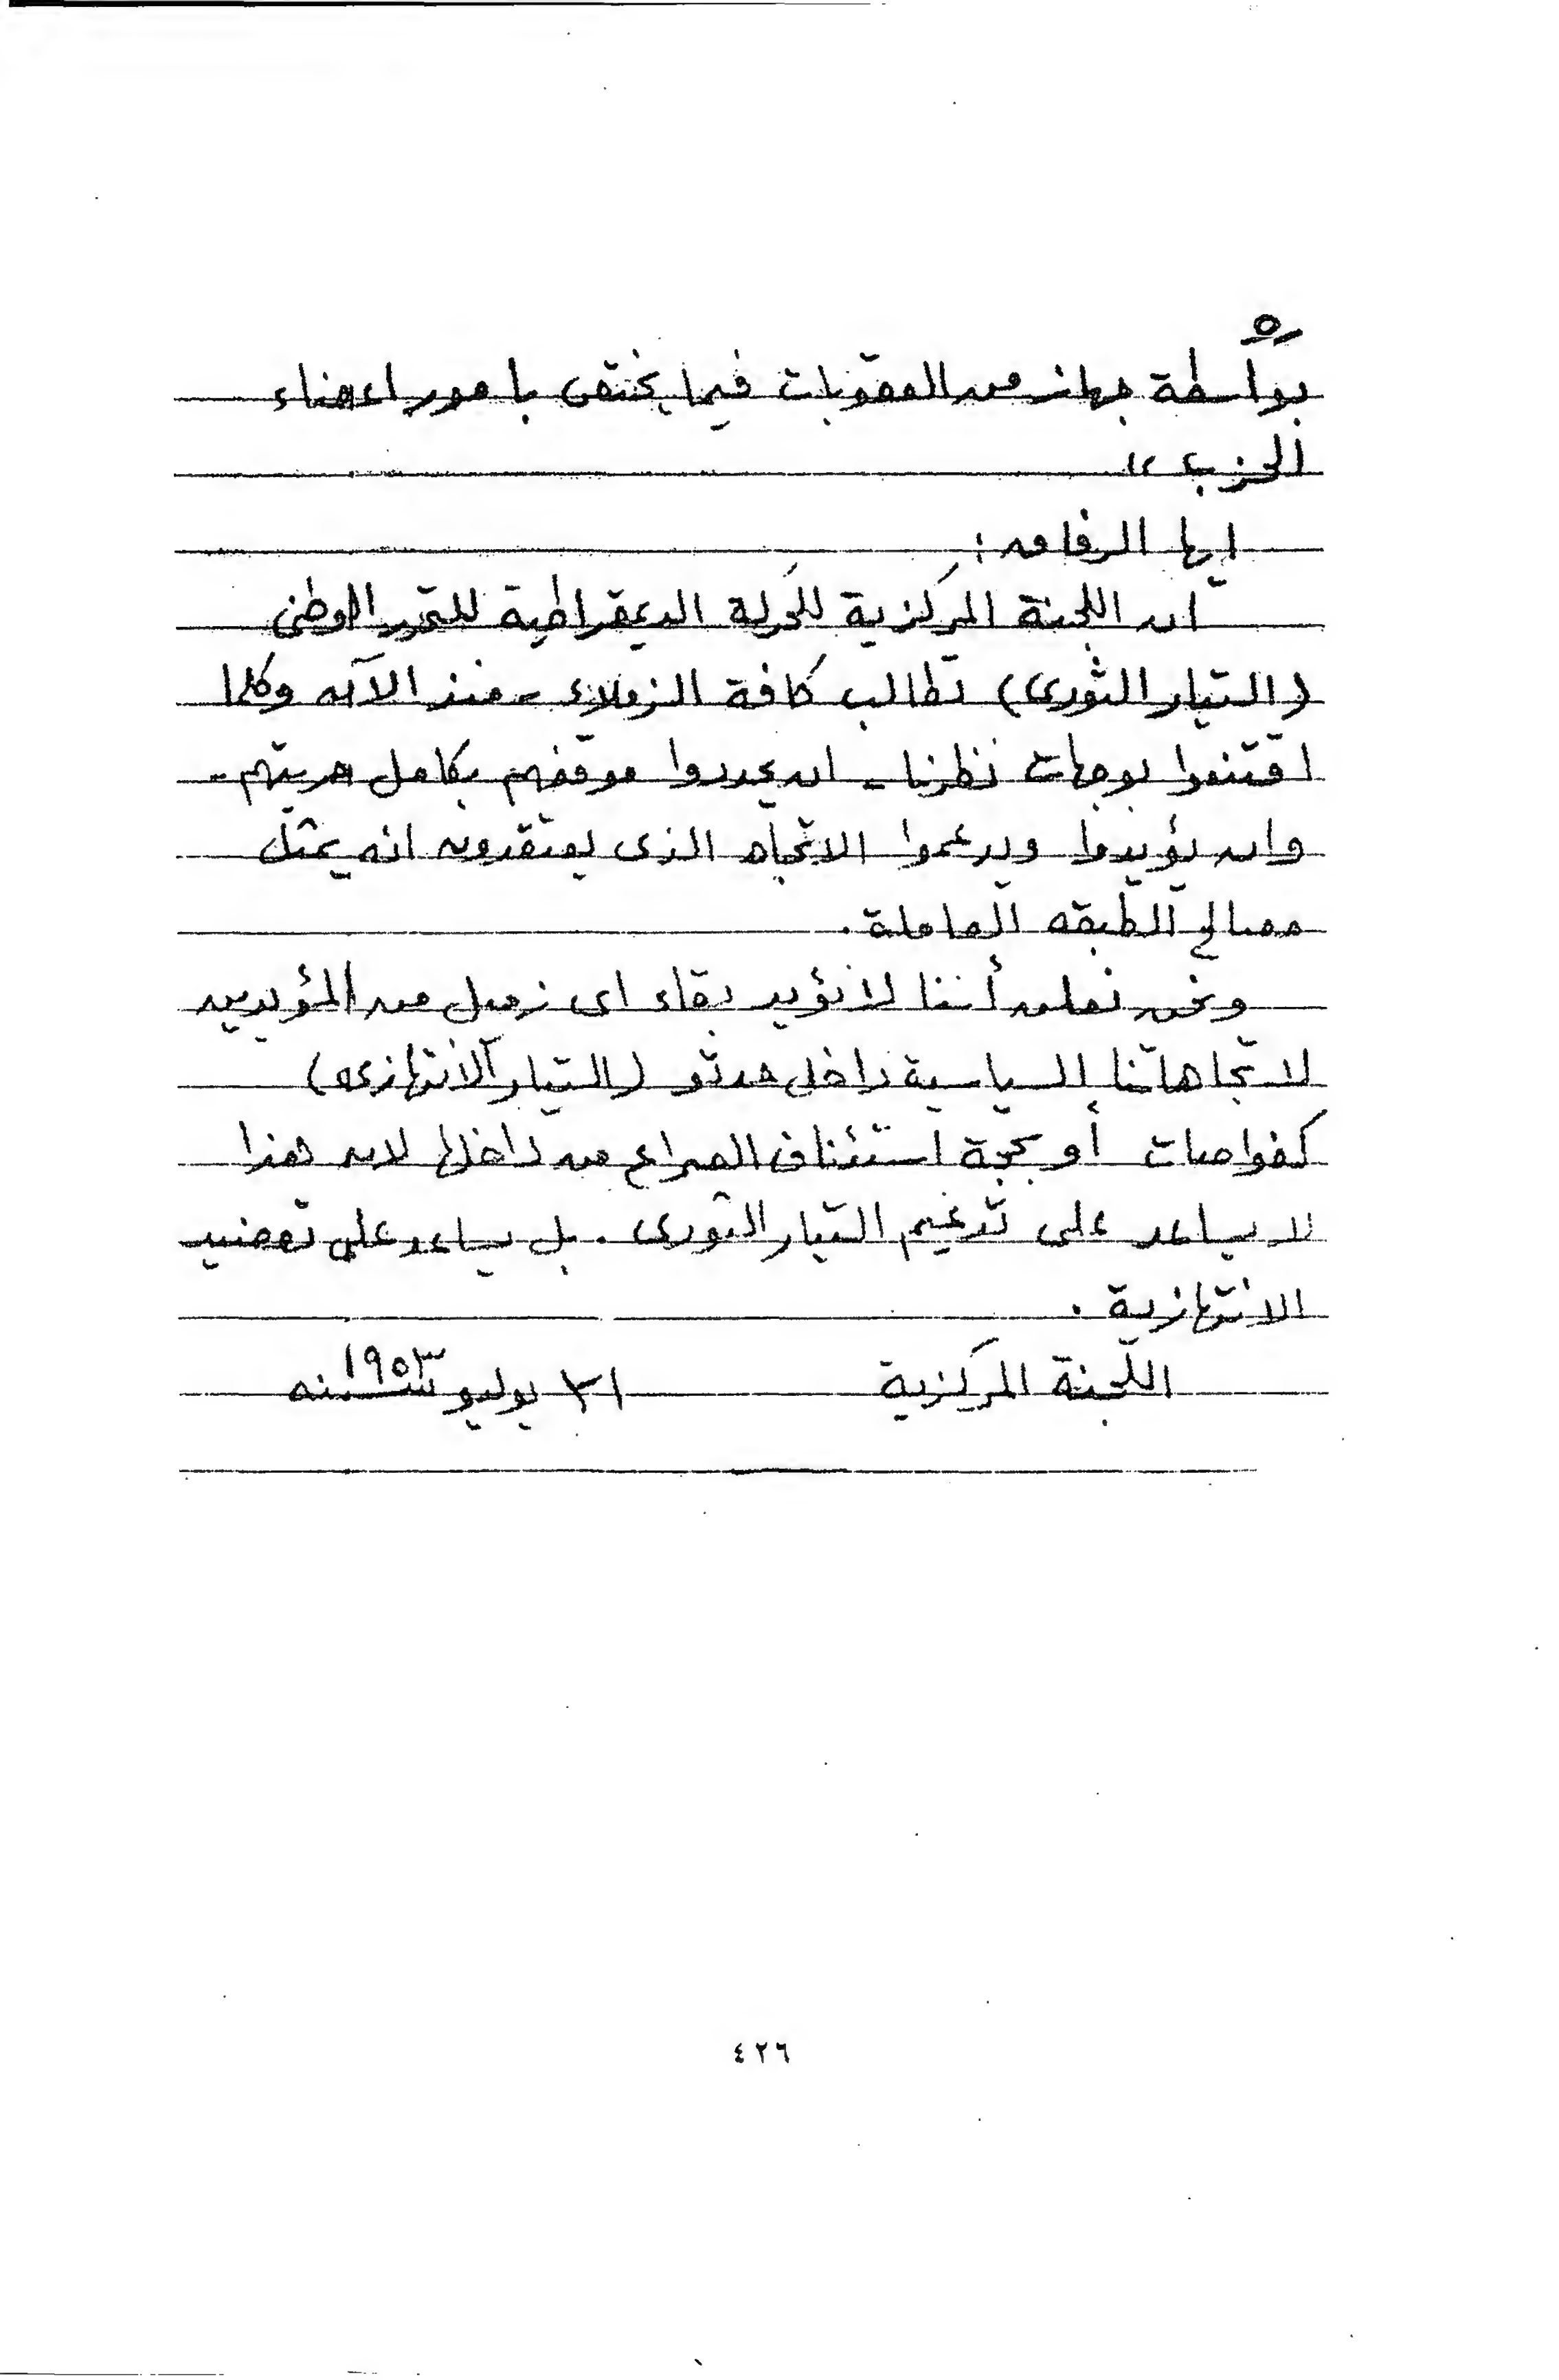 ٥
بواسطة جهاز من العقوبات فيما يختص بامور اعضاء
الحزب "
ايها الرفاق :
ان اللجنة المركزية للحركة الديمقراطية للتحرر الوطنى
(التيار الثورى) تطالب كافة الزملاء - منذ الآن وكلما
اقتنعوا بوجهات نظرنا - ان يحددوا موقفهم بكامل حريتهم -
وان يؤيدوا ويدعموا الاتجاه الذى يعتقدون انه يمثل
مصالح الطبقه العاملة .
ونحن نعلن أننا لا نؤيد بقاء اى زميل من المؤيدين
لاتجاهاتنا السياسية داخل حدتو (التيار الانتهازى)
كغواصات أو بحجة استئناف الصراع من داخلها لان هذا
لا يساعد على تدعيم التيار الثورى . بل يساعد على تعضيد
الانتهازية .
اللجنة المركزية ٣١ يوليو سنه ١٩٥٣
٤٢٦